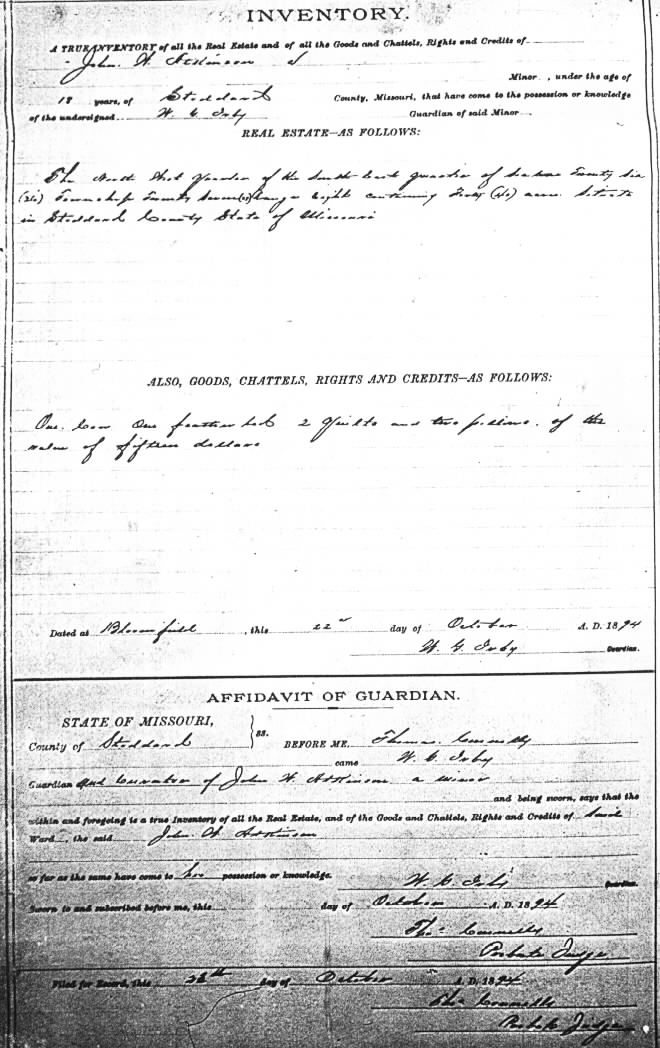 INVENTORY.
A TRUE INVENTORY of all the Real Estate and of all the Goods and Chattels, Rights and Credits of
John W Atkinson a
Minor , under the age of
18 years, of Stoddard County, Missouri, that have come to the possession or knowledge
of the undersigned W C Guardian of said Minor .
REAL ESTATE—AS FOLLOWS:
The North West Quarter of the South East quarter of Section Twenty Six
(26) Township Twenty Seven Range Eight containing Forty (40) acres Situate
in Stoddard County State of Missouri
ALSO, GOODS, CHATTELS, RIGHTS AND CREDITS—AS FOLLOWS:
One Cow One feather bed 2 Quilts and two pillows of the
value of fifteen dollars
Dated at Bloomfield , this 22nd day of October A. D. 1894
Guardian.
AFFIDAVIT OF GUARDIAN.
STATE OF MISSOURI,
County of Stoddard } ss. BEFORE ME, Thomas Connelly
came W. C.
Guardian and Curator of John W. Atkinson a minor
and being sworn, says that the
within and foregoing is a true Inventory of all the Real Estate, and of the Goods and Chattels, Rights and Credits of said
Ward , the said John W Atkinson
so far as the same have come to his possession or knowledge.
W. C. Guardian.
Sworn to and subscribed before me, this day of October A. D. 1894
Thos Connelly
Probate Judge
Filed for Record, this day of October A. D. 1894
Thos Connelly
Probate Judge